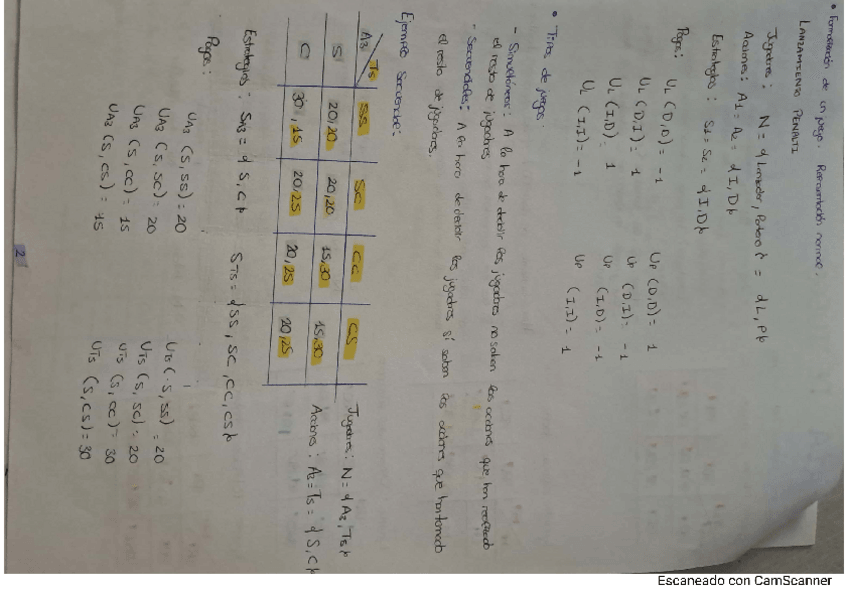 • Formulación de un juego. Representación normal.
LANZAMIENTO PENALTI
Jugadores: N = { Lanzador, Portero } = { L, P }
Acciones: A1 = A2 = { I, D }
Estrategias: S1 = S2 = { I, D }
Pagos: UL (D,D) = -1 UP (D,D) = 1
UL (D,I) = 1 UP (D,I) = -1
UL (I,D) = 1 UP (I,D) = -1
UL (I,I) = -1 UP (I,I) = 1
• Tipos de juegos.
- Simultáneos: A la hora de decidir los jugadores no saben las acciones que han realizado
el resto de jugadores.
- Secuenciales: A la hora de decidir los jugadores sí saben las acciones que han tomado
el resto de jugadores.
Ejemplo Secuencial:
Az Ts SS SC CC CS Jugadores: N = { Az, Ts }
S 20,20 20,20 15,30 15,30 Acciones: Az = Ts = { S, C }
C 30,15 20,25 20,25 20,25
Estrategias: SAz = { S, C } STs = { SS, SC, CC, CS }
Pagos:
UAz (S, SS) = 20 UTs (S, SS) = 20
UAz (S, SC) = 20 UTs (S, SC) = 20
UAz (S, CC) = 15 UTs (S, CC) = 30
UAz (S, CS) = 15 UTs (S, CS) = 30
2
Escaneado con CamScanner